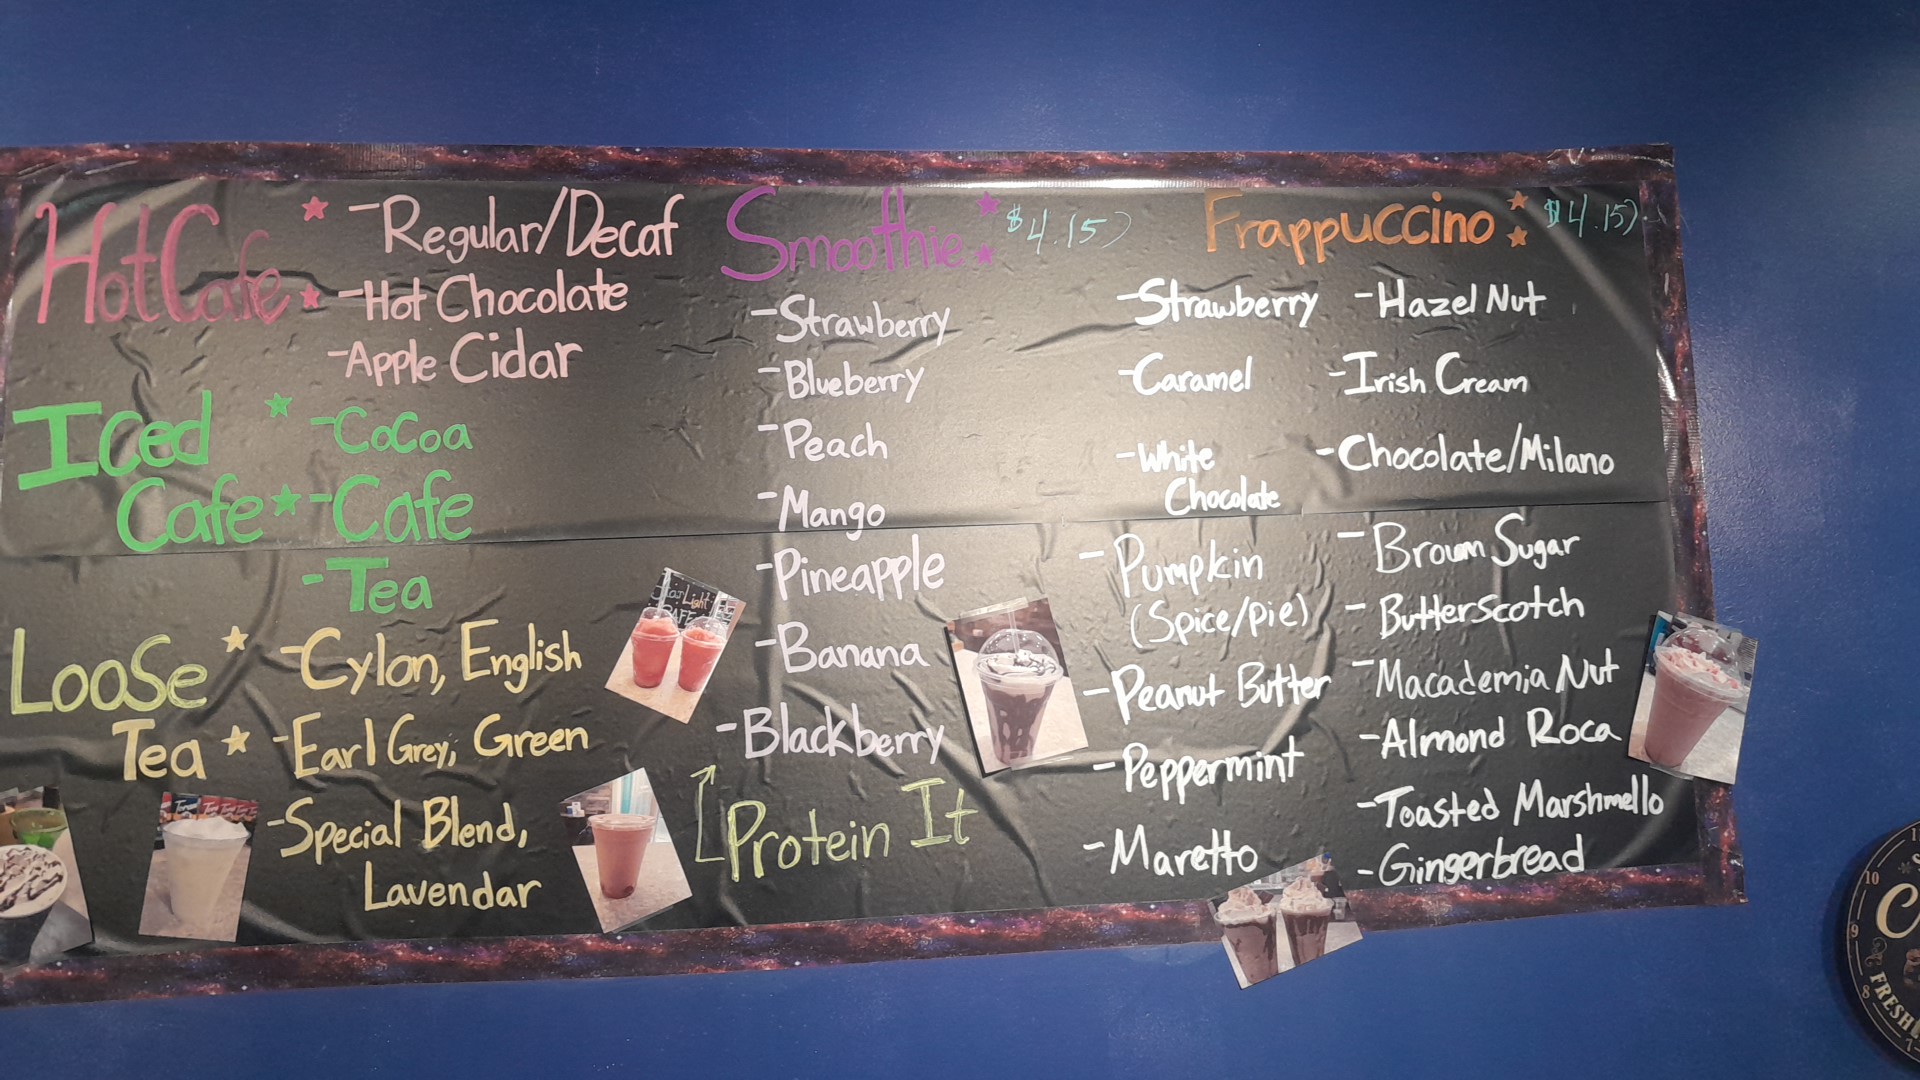 Hot Cafe
-Regular/Decaf
-Hot Chocolate
-Apple Cidar
Iced
Cafe
-Cocoa
-Cafe
-Tea
Loose
Tea
-Cylon, English
-Earl Grey, Green
-Special Blend,
Lavendar
Smoothie
$4.15
-Strawberry
-Blueberry
-Peach
-Mango
-Pineapple
-Banana
-Blackberry
Protein It
Frappuccino
$4.15
-Strawberry
-Caramel
-White
Chocolate
-Pumpkin
(Spice/pie)
-Peanut Butter
-Peppermint
-Maretto
-Hazel Nut
-Irish Cream
-Chocolate/Milano
-Brown Sugar
-Butterscotch
-Macademia Nut
-Almond Roca
-Toasted Marshmello
-Gingerbread
10
9
8
7
FRESH